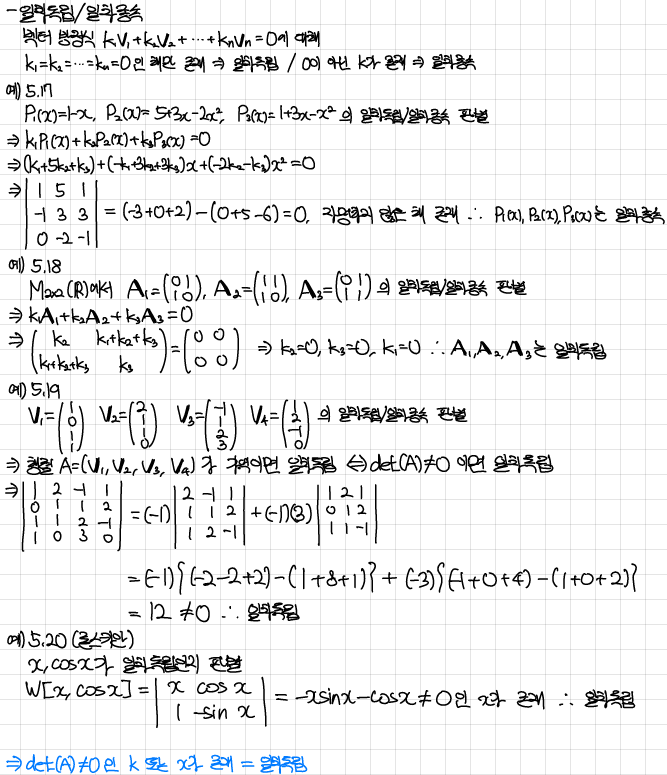 - 일차독립/일차종속
벡터 방정식 k₁V₁+k₂V₂+⋯+kₙVₙ=0에 대해
k₁=k₂=⋯=kₙ=0인 해만 존재 ⇒ 일차독립 / 0이 아닌 k가 존재 ⇒ 일차종속
예) 5.17
P₁(x)=1-x, P₂(x)=5+3x-2x², P₃(x)=1+3x-x² 의 일차독립/일차종속 판별
⇒ k₁P₁(x)+k₂P₂(x)+k₃P₃(x)=0
⇒ (k₁+5k₂+k₃)+(-k₁+3k₂+3k₃)x+(-2k₂-k₃)x²=0
⇒ | 1 5 1 |
| -1 3 3 | = (-3+0+2)-(0+5-6)=0, 자명하지 않은 해 존재 ∴ P₁(x), P₂(x), P₃(x)는 일차종속
| 0 -2 -1 |
예) 5.18
M₂ₓ₂(ℝ)에서 A₁=(0 1; 1 0), A₂=(1 1; 1 0), A₃=(0 1; 1 1) 의 일차독립/일차종속 판별
⇒ k₁A₁+k₂A₂+k₃A₃=0
⇒ (k₂ k₁+k₂+k₃; k₁+k₂+k₃ k₃) = (0 0; 0 0) ⇒ k₂=0, k₃=0, k₁=0 ∴ A₁, A₂, A₃는 일차독립
예) 5.19
V₁=(1 0 1 1) V₂=(2 1 1 0) V₃=(-1 1 2 3) V₄=(1 2 -1 0) 의 일차독립/일차종속 판별
⇒ 행렬 A=(V₁, V₂, V₃, V₄)가 가역이면 일차독립 ⇔ det(A)≠0 이면 일차독립
⇒ | 1 2 -1 1 |
| 0 1 1 2 | = (-1) | 2 -1 1; 1 1 2; 1 2 -1 | + (-1)(3) | 1 2 1; 0 1 2; 1 1 -1 |
| 1 1 2 -1 |
| 1 0 3 0 |
= (-1){(-2-2+2)-(1+8+1)} + (-3){(-1+0+4)-(1+0+2)}
= 12 ≠0 ∴ 일차독립
예) 5.20 (론스키안)
x, cosx가 일차독립인지 판별
W[x, cosx] = | x cos x; 1 -sin x | = -xsinx-cosx≠0인 x가 존재 ∴ 일차독립
⇒ det(A)≠0인 k 또는 x가 존재 = 일차독립